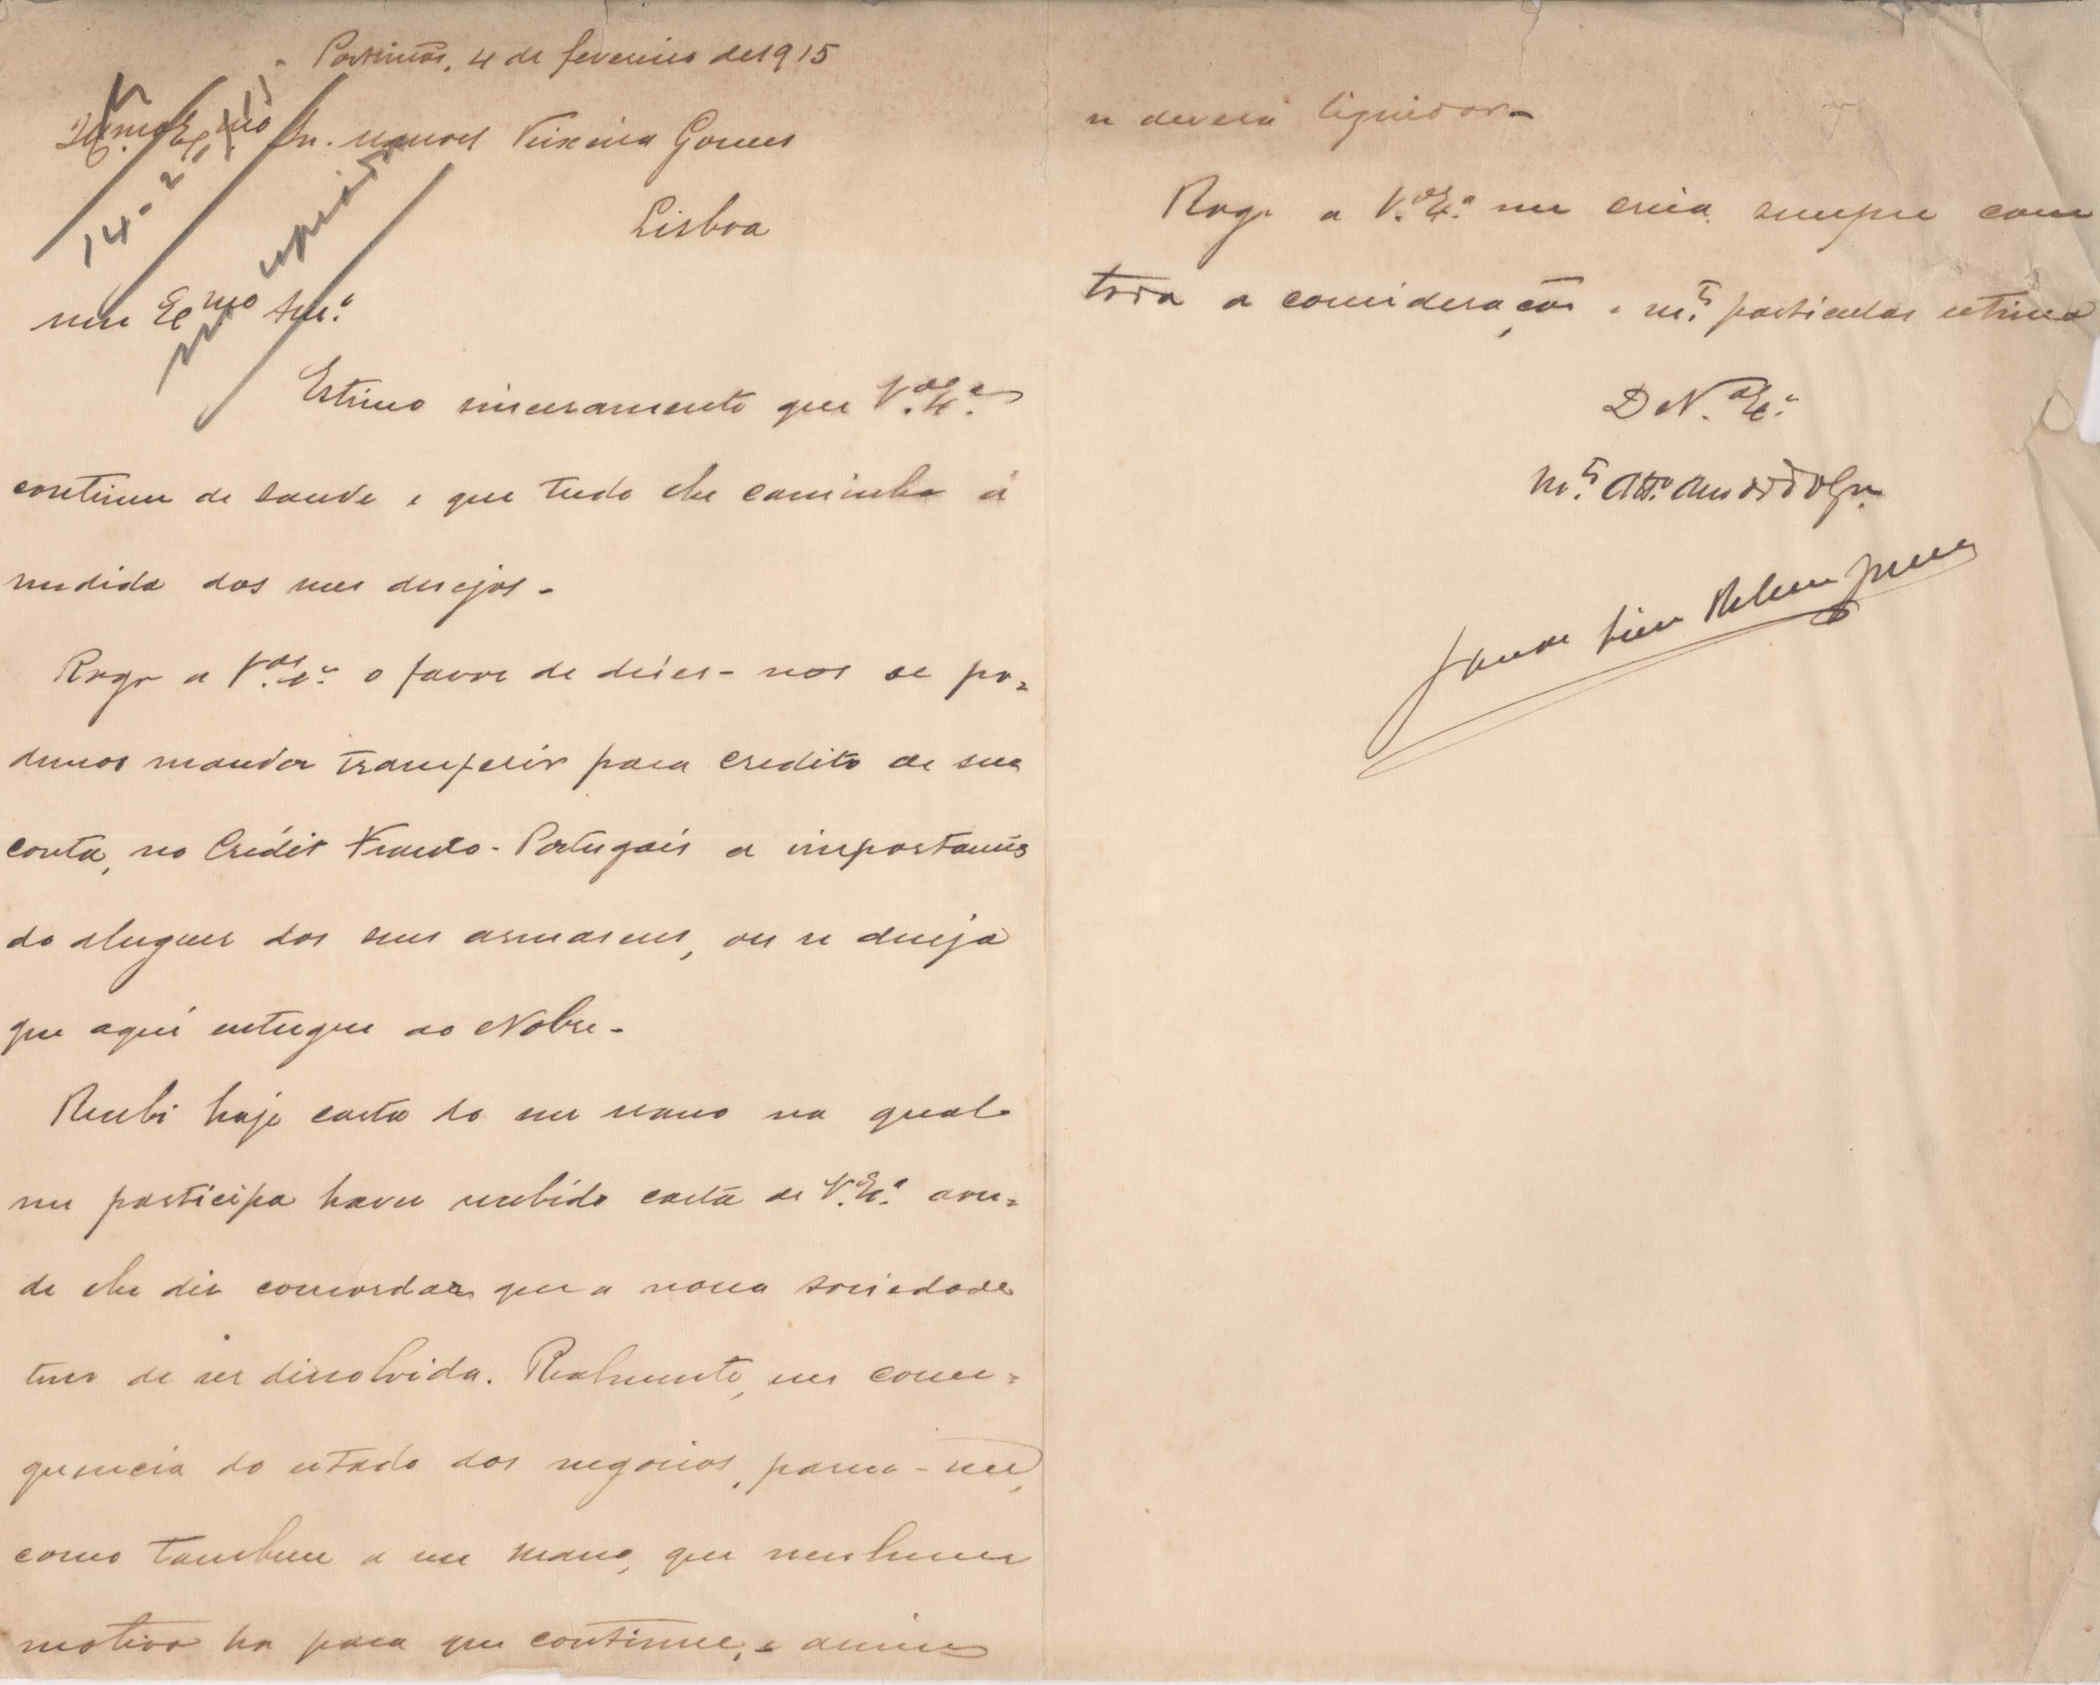 Portimão, 4 de fevereiro de 1915
Illmo Exmo Snr. Manoel Teixeira Gomes
14-2-915
Lisboa
meu Exmo Am.º
Estimo sinceramente que V.ª Ex.ª
continue de saude e que tudo lhe caminhe á
medida dos seus desejos -
Rogo a V.ª Ex.ª o favor de dizer-nos se po=
demos mandar transferir para credito de sua
conta, no Crédit Franco-Portugais a importancia
do aluguer dos seus armasens, ou se deseja
que aqui entregue ao Nobre -
Recebi hoje carta do meu mano na qual
me participa haver recebido carta de V. Ex.ª on=
de lhe diz concordar que a nossa sociedade
tem de ser dissolvida. Realmente, em conse=
quencia do estado dos negocios, parece-me,
como tambem a meu mano, que nenhum
motivo ha para que continue, e assim
se deverá liquidar -
Rogo a V.ª Ex.ª me creia sempre com
toda a consideração e m.to particular estima
De V.ª Ex.ª
m.to att.º am.º obgd.º